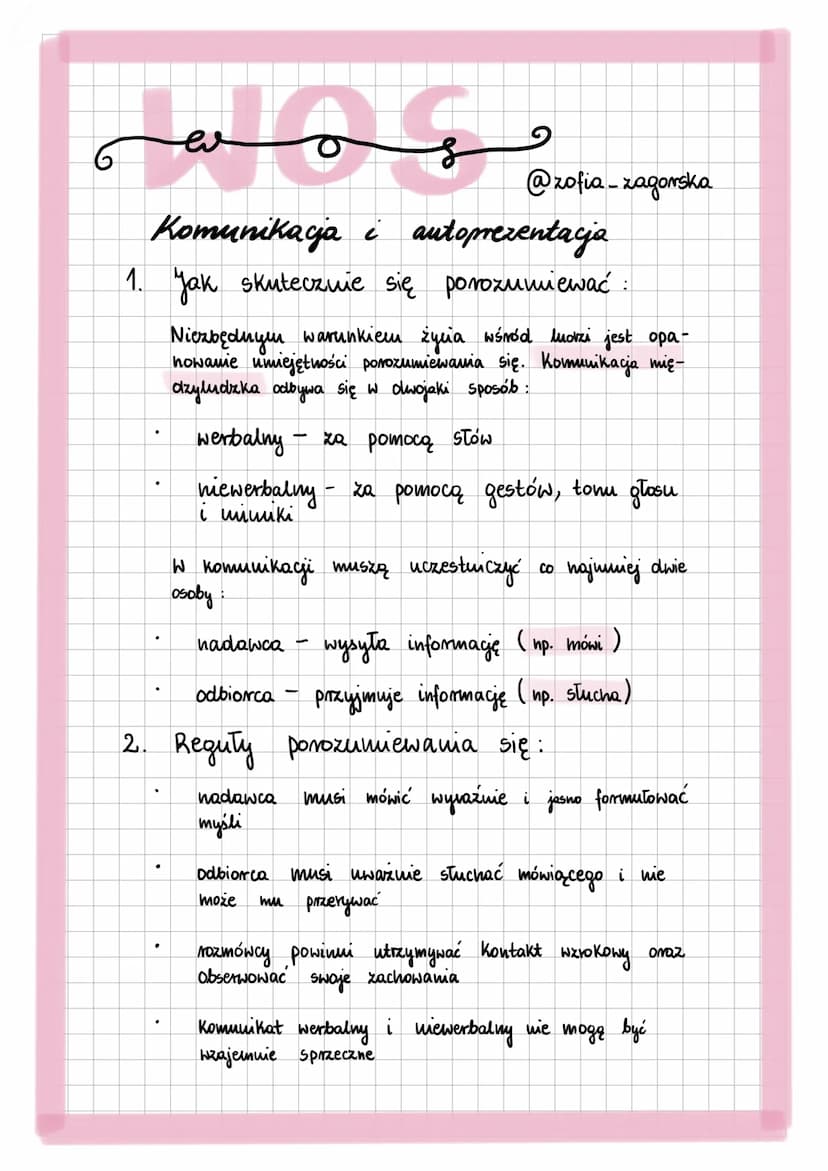 WOS
wos
@zofia_zagorska
Komunikacja i autoprezentacja
1. Jak skutecznie się porozumiewać :
Niezbędnym warunkiem życia wśród ludzi jest opa-
nowanie umiejętności porozumiewania się. Komunikacja mię-
dzyludzka odbywa się w dwojaki sposób :
· werbalny – za pomocą słów
· niewerbalny – za pomocą gestów, tonu głosu
i mimiki
W komunikacji muszą uczestniczyć co najmniej dwie
osoby :
· nadawca – wysyła informację ( np. mówi )
· odbiorca – przyjmuje informację ( np. słucha )
2. Reguły porozumiewania się :
· nadawca musi mówić wyraźnie i jasno formułować
myśli
· odbiorca musi uważnie słuchać mówiącego i nie
może mu przerywać
· rozmówcy powinni utrzymywać kontakt wzrokowy oraz
obserwować swoje zachowania
· Komunikat werbalny i niewerbalny nie mogą być
wzajemnie sprzeczne